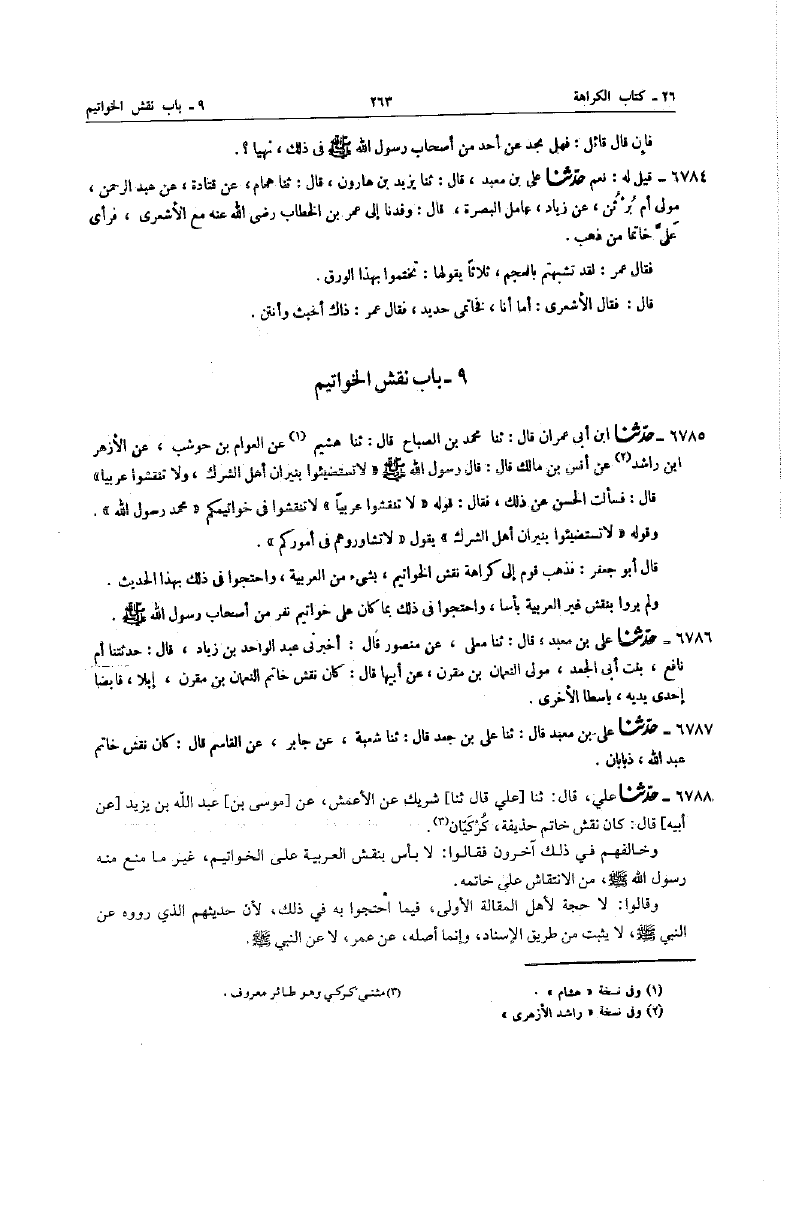 ٢٦ ـ كتاب الكراهة ٢٦٣ ٩ ـ باب نقش الخواتيم
فإن قال قائل : فهل نجد عن أحد من أصحاب رسول الله ﷺ فى ذلك ، نهيا ؟ .
٦٧٨٤ ـ قيل له : نعم حدّثنا على بن معبد ، قال : ثنا يزيد بن هارون ، قال : ثنا همام ، عن قتادة ، عن عبد الرحمن ،
مولى أم بُرْثُن ، عن زياد ، عامل البصرة ، قال : وفدنا إلى عمر بن الخطاب رضى الله عنه مع الأشعرى ، فرأى
علىَّ خاتما من ذهب .
فقال عمر : لقد تشبهتم بالعجم ، ثلاثاً يقولها : تختموا بهذا الورق .
قال : فقال الأشعرى : أما أنا ، فخاتمى حديد ، فقال عمر : ذاك أخبث وأنتن .
٩ ـ باب نقش الخواتيم
٦٧٨٥ ـ حدّثنا ابن أبى عمران قال : ثنا محمد بن الصباح قال : ثنا هشيم (١) عن العوام بن حوشب ، عن الأزهر
ابن راشد(٢) عن أنس بن مالك قال : قال رسول الله ﷺ « لاتستضيئوا بنيران أهل الشرك ، ولا تنقشوا عربيا»
قال : فسألت الحسن عن ذلك ، فقال : قوله « لا تنقشوا عربياً » لاتنقشوا فى خواتيمكم « محمد رسول الله » .
وقوله « لاتستضيئوا بنيران أهل الشرك » يقول « لاتشاوروهم فى أموركم » .
قال أبو جعفر : فذهب قوم إلى كراهة نقش الخواتيم ، بشىء من العربية ، واحتجوا فى ذلك بهذا الحديث .
ولم يروا بنقش غير العربية بأسا ، واحتجوا فى ذلك بما كان على خواتيم نفر من أصحاب رسول الله ﷺ .
٦٧٨٦ ـ حدّثنا على بن معبد ، قال : ثنا معلى ، عن منصور قال : أخبرنى عبد الواحد بن زياد ، قال : حدثتنا أم
نافع ، بنت أبى الجعد ، مولى النعمان بن مقرن ، عن أبيها قال : كان نقش خاتم النعمان بن مقرن ، إبلا ، قابضا
إحدى يديه ، باسطا الأخرى .
٦٧٨٧ ـ حدّثنا على بن معبد قال : ثنا على بن جعد قال : ثنا شعبة ، عن جابر ، عن القاسم قال : كان نقش خاتم
عبد الله ، ذبابان .
٦٧٨٨ ـ حدّثنا علي، قال: ثنا [علي قال ثنا] شريك عن الأعمش، عن [موسى بن] عبد الله بن يزيد [عن
أبيه] قال: كان نقش خاتم حذيفة، كُرْكَيَان(٣).
وخالفهم في ذلك آخرون فقالوا: لا بأس بنقش العربية على الخواتيم، غير ما منع منه
رسول الله ﷺ، من الانتقاش على خاتمه.
وقالوا: لا حجة لأهل المقالة الأولى، فيما احتجوا به في ذلك، لأن حديثهم الذي رووه عن
النبي ﷺ، لا يثبت من طريق الإسناد، وإنما أصله، عن عمر، لا عن النبي ﷺ.
(١) وفى نسخة « هشام » . (٣) مثنى كركي وهو طائر معروف .
(٢) وفى نسخة « راشد الأزهرى »